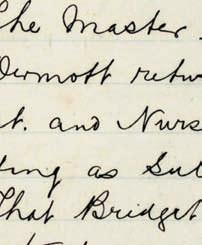 the Master
Dermott retu
t. and Nurs
ting as Sub
That Bridget